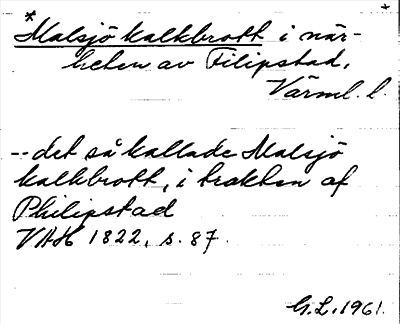 *
Malsjö kalkbrott i när-
heten av Filipstad,
Värml. l.
-- det så kallade Malsjö
kalkbrott, i trakten af
Philipstad
VAH 1822, s. 87.
G.L. 1961.